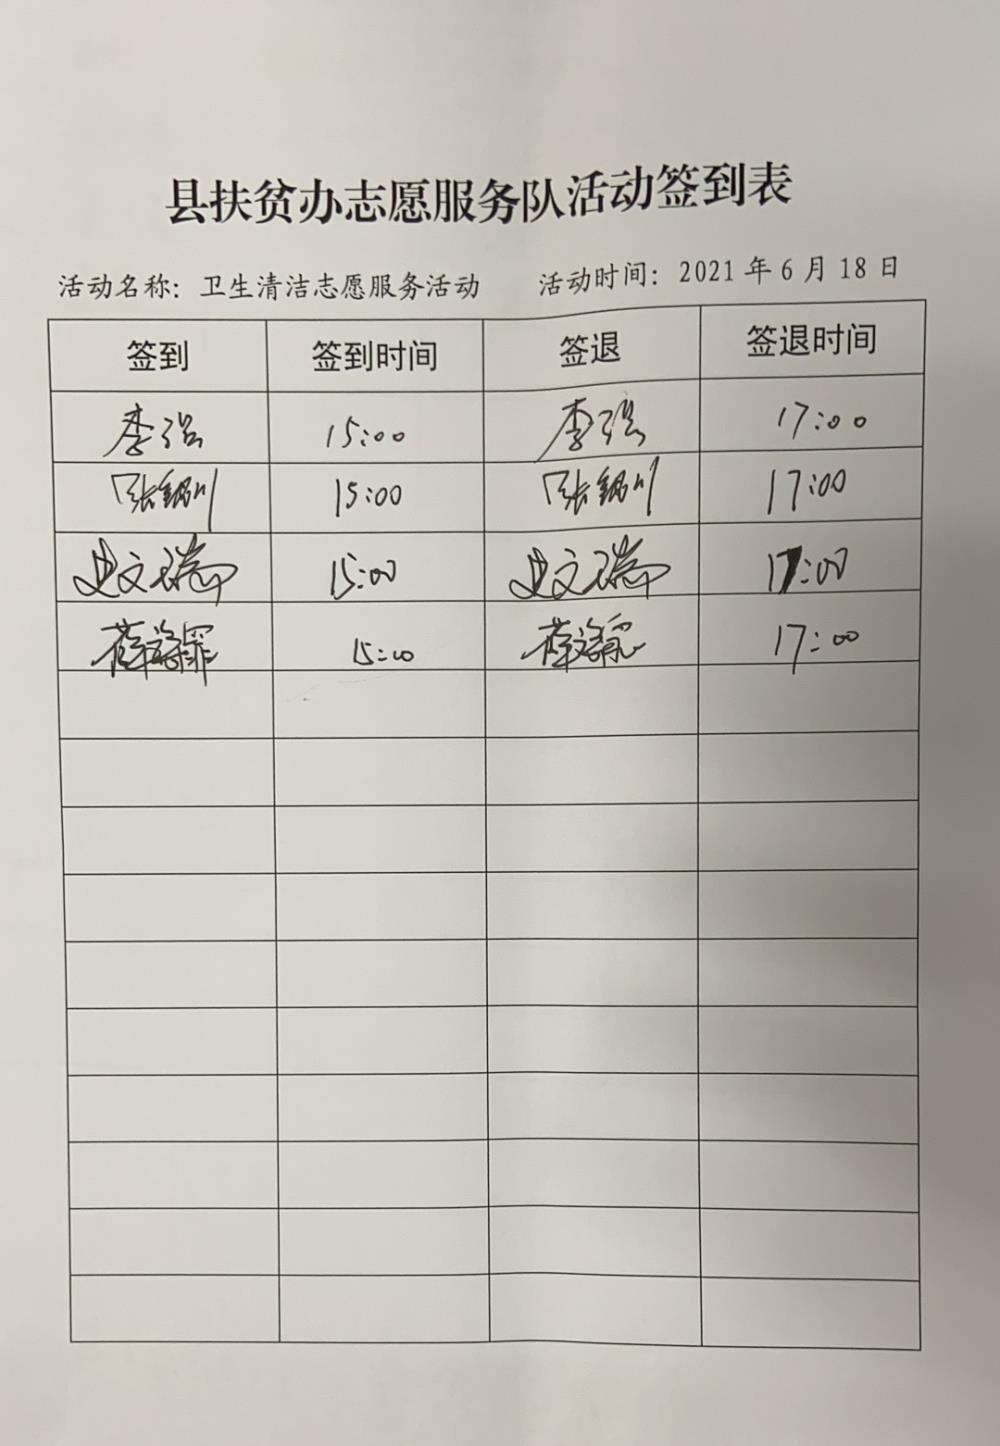 县扶贫办志愿服务队活动签到表
活动名称：卫生清洁志愿服务活动 活动时间：2021 年 6 月 18 日
签到 签到时间 签退 签退时间
李强 15:00 李强 17:00
15:00 17:00
史文瑞 15:00 史文瑞 17:00
15:00 17:00